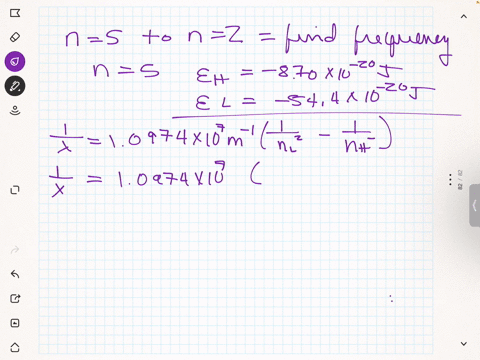 n=5 to n=2 = find frequency
n=5 εH = -8.70×10⁻²⁰J
εL = -54.4×10⁻²⁰J
1/λ = 1.0974×10⁷m⁻¹(1/n_L² - 1/n_H⁻)
1/λ = 1.0974×10⁷ (